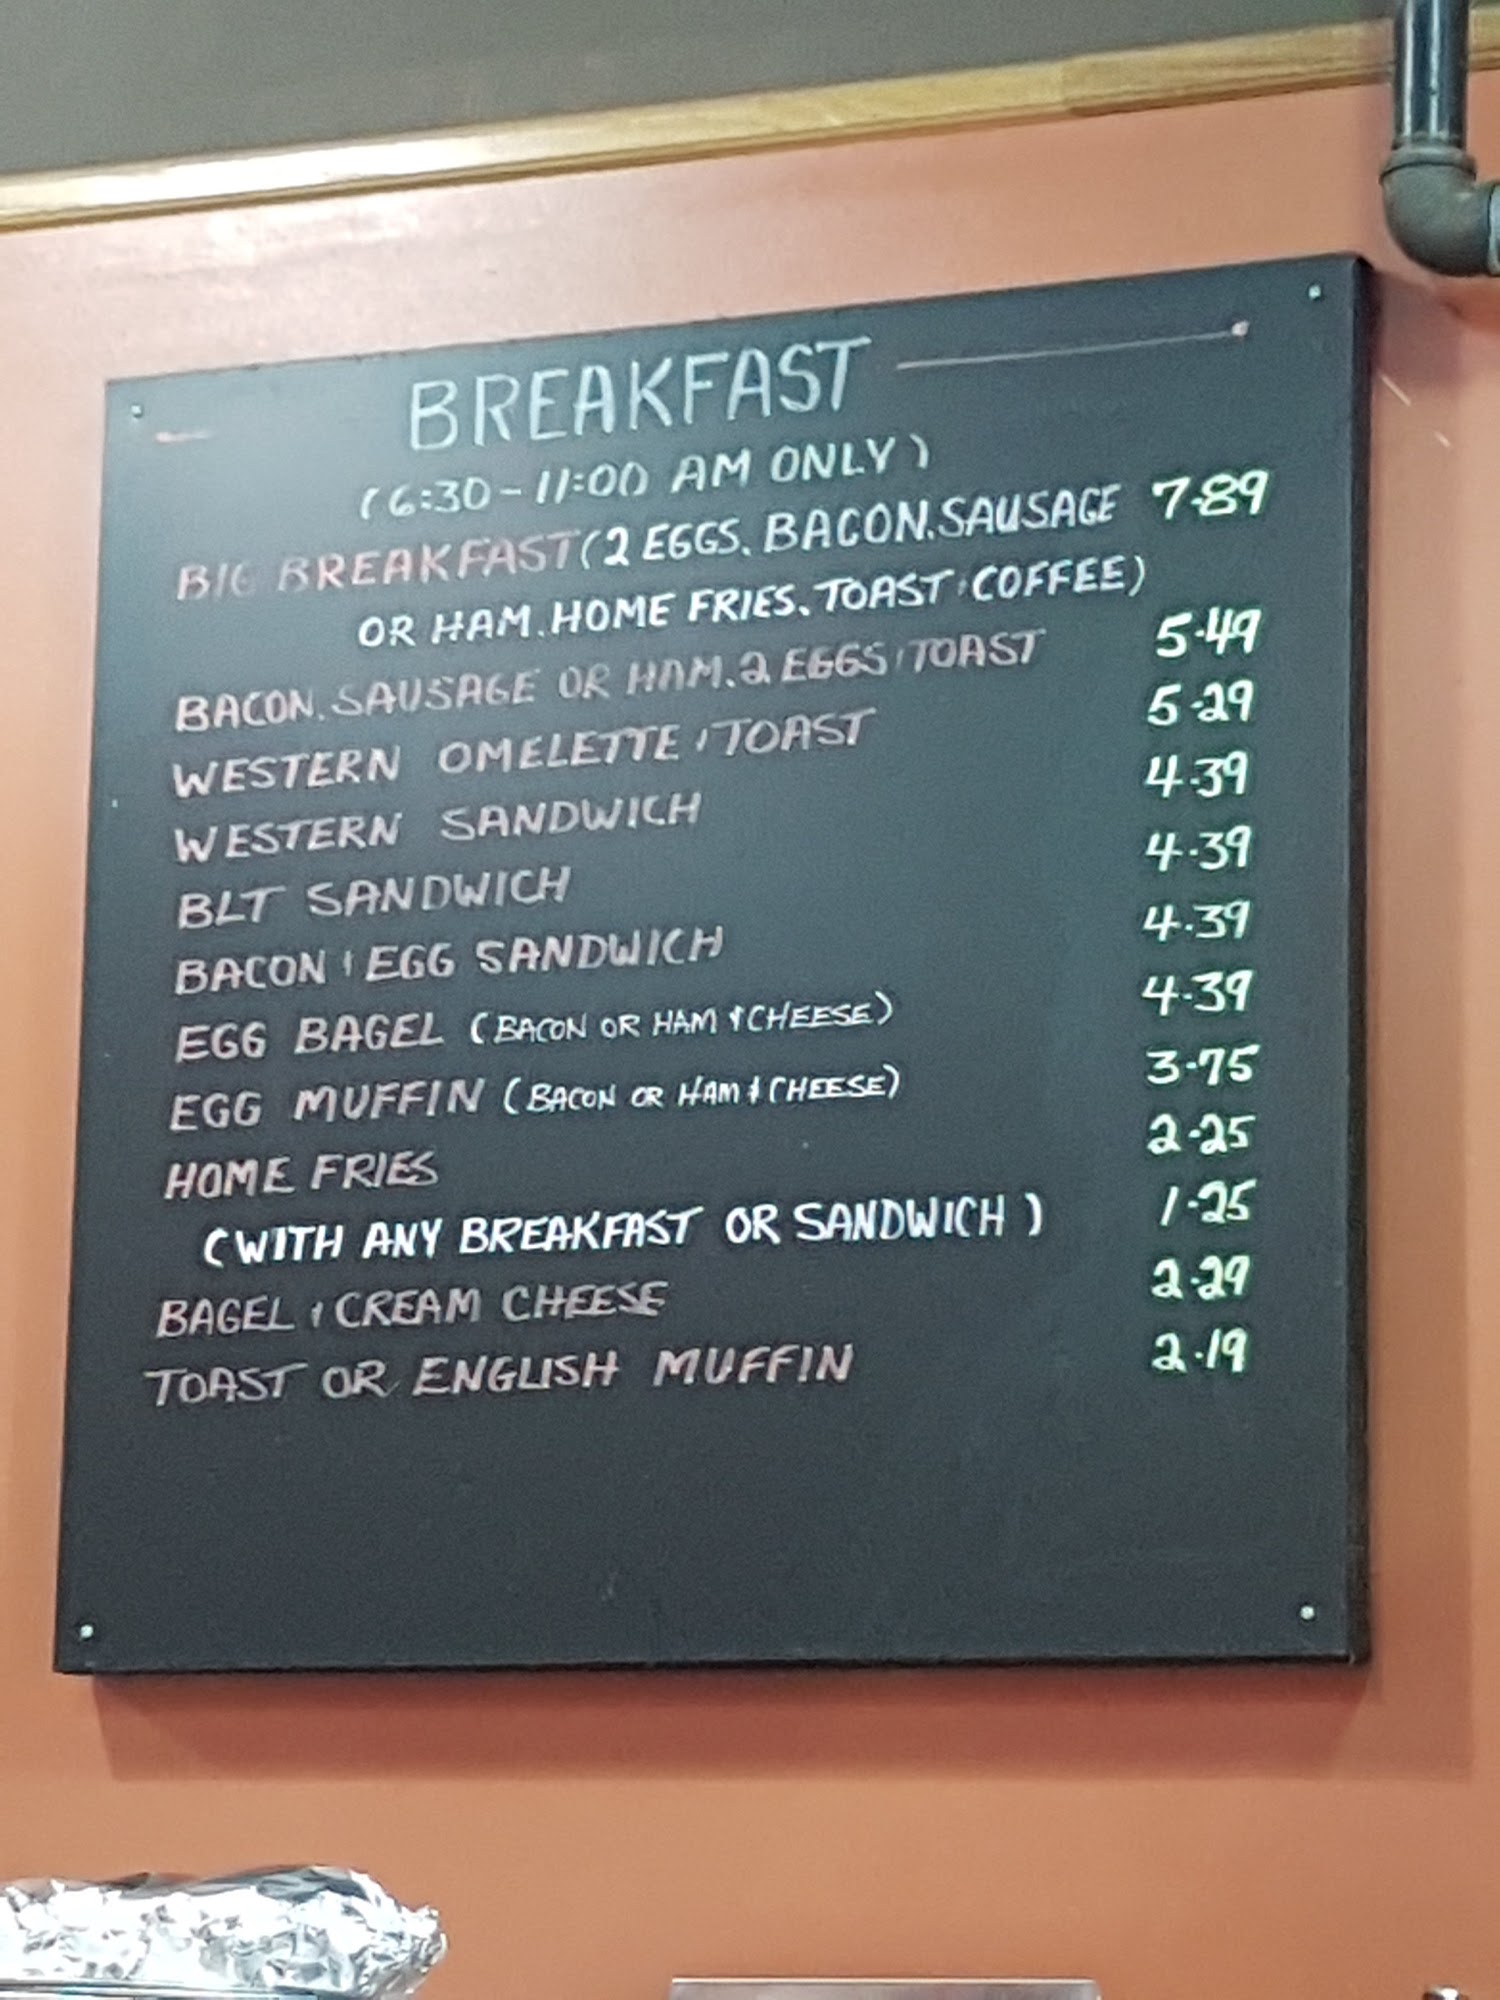 BREAKFAST
(6:30-11:00 AM ONLY)
BIG BREAKFAST (2 EGGS, BACON, SAUSAGE 7.89
OR HAM, HOME FRIES, TOAST & COFFEE)
BACON, SAUSAGE OR HAM, 2 EGGS & TOAST 5.49
WESTERN OMELETTE & TOAST 5.29
WESTERN SANDWICH 4.39
BLT SANDWICH 4.39
BACON & EGG SANDWICH 4.39
EGG BAGEL (BACON OR HAM & CHEESE) 4.39
EGG MUFFIN (BACON OR HAM & CHEESE) 3.75
HOME FRIES 2.25
(WITH ANY BREAKFAST OR SANDWICH) 1.25
BAGEL & CREAM CHEESE 2.29
TOAST OR ENGLISH MUFFIN 2.19